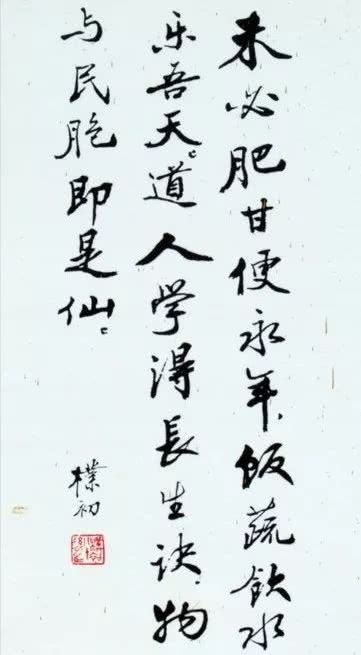 未必肥甘便永年，饭蔬飲水
乐吾天。道人学得長生诀，物
与民胞即是仙。
樸初